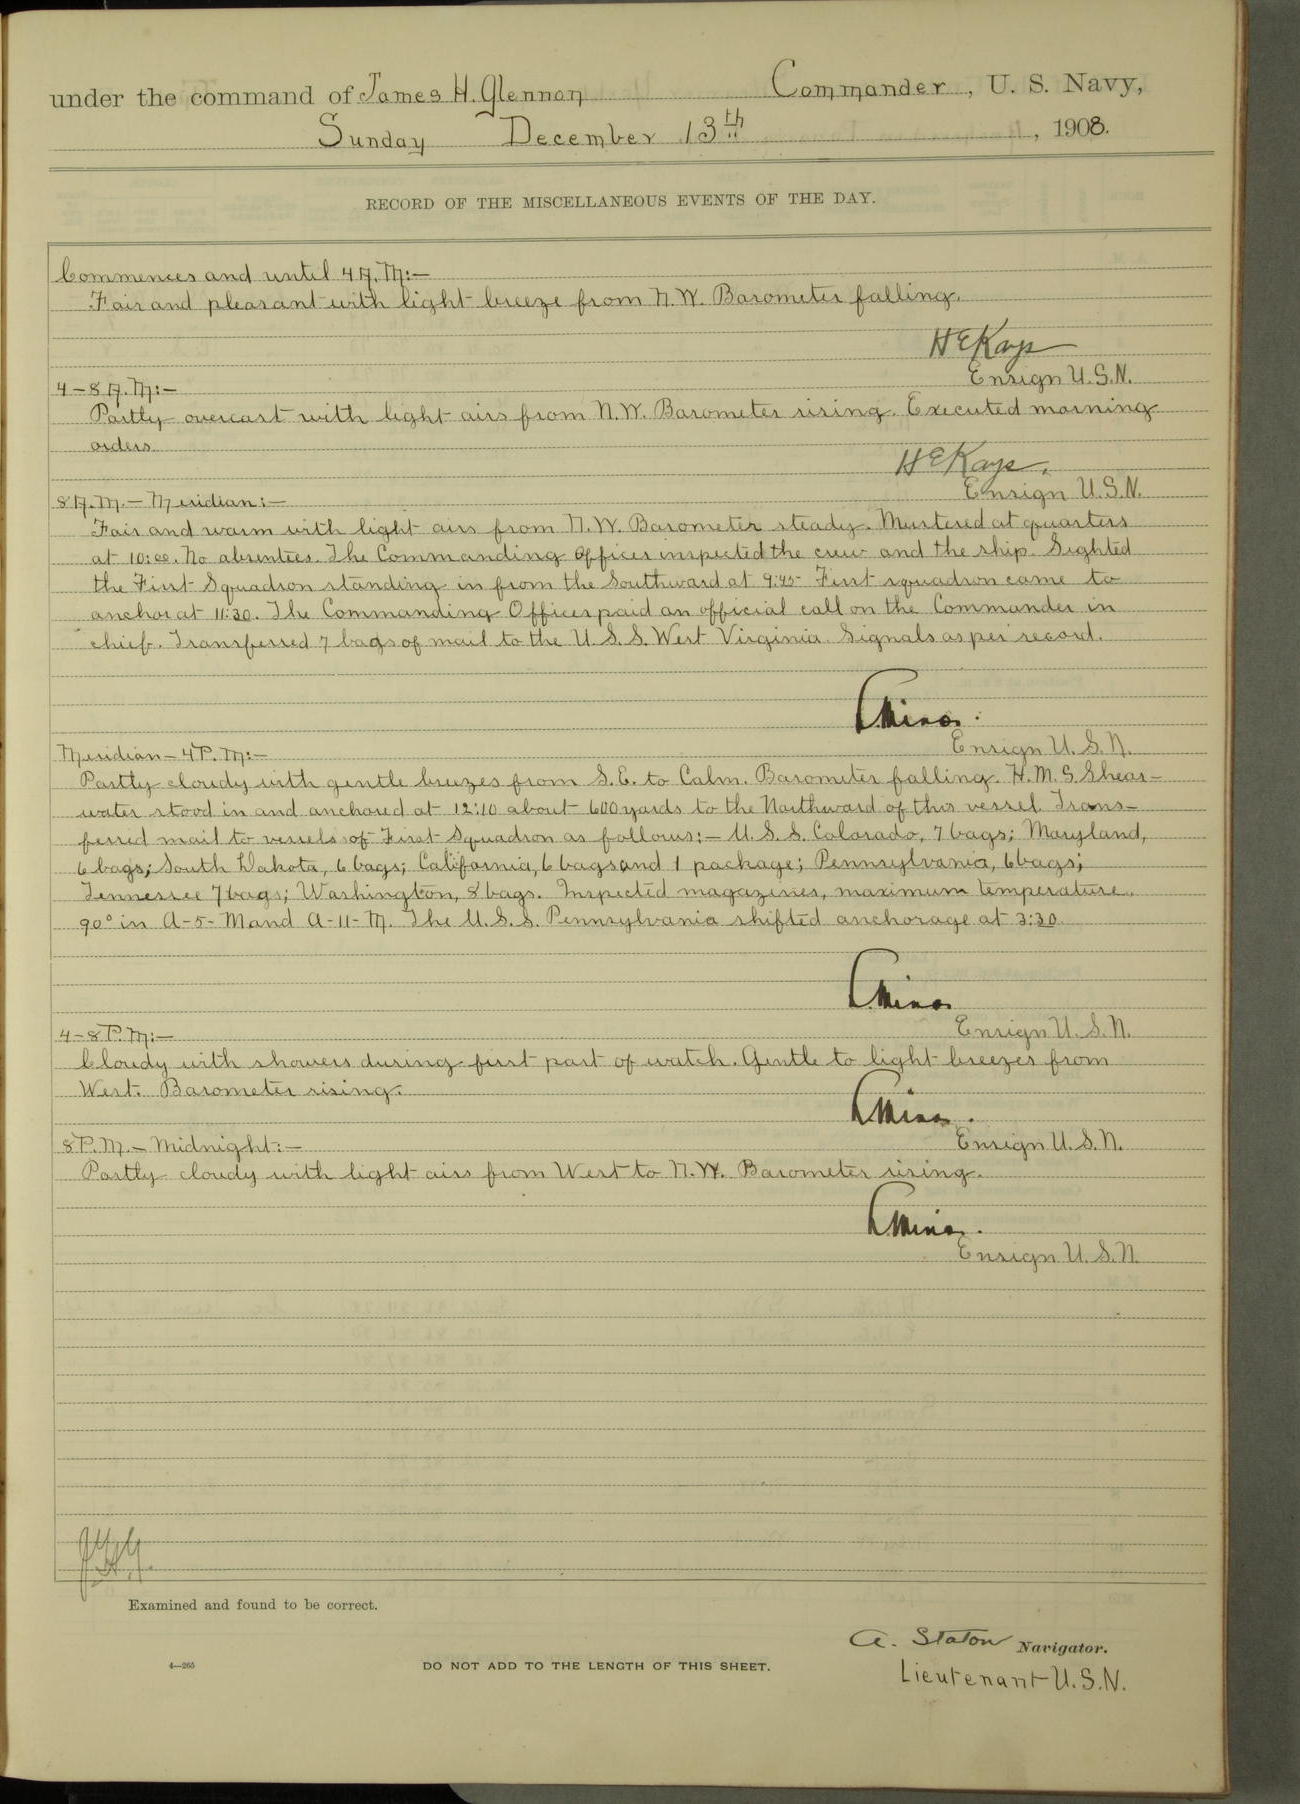 under the command of James H. Glennon Commander, U. S. Navy,
Sunday December 13th, 1908.
RECORD OF THE MISCELLANEOUS EVENTS OF THE DAY.
Commences and until 4 A.M:—
Fair and pleasant with light breeze from N.W. Barometer falling.
H E Kays
Ensign U.S.N.
4 – 8 A.M:—
Partly overcast with light airs from N.W. Barometer rising. Executed morning
orders.
H E Kays.
Ensign U.S.N.
8 A.M. – Meridian:—
Fair and warm with light airs from N.W. Barometer steady. Mustered at quarters
at 10:00. No absentees. The Commanding Officer inspected the crew and the ship. Sighted
the First Squadron standing in from the Southward at 9:45. First squadron came to
anchor at 11:30. The Commanding Officer paid an official call on the Commander in
chief. Transferred 7 bags of mail to the U.S.S. West Virginia. Signals as per record.
Ensign U.S.N.
Meridian – 4 P.M:—
Partly cloudy with gentle breezes from S.E. to Calm. Barometer falling. H.M.S. Shear-
water stood in and anchored at 12:10 about 600 yards to the Northward of this vessel. Trans-
ferred mail to vessels of First Squadron as follows:— U.S.S. Colorado, 7 bags; Maryland,
6 bags; South Dakota, 6 bags; California, 6 bags and 1 package; Pennsylvania, 6 bags;
Tennessee 7 bags; Washington, 8 bags. Inspected magazines, maximum temperature
90° in A-5-M and A-11-M. The U.S.S. Pennsylvania shifted anchorage at 3:30.
Ensign U.S.N.
4 – 8 P.M:—
Cloudy with showers during first part of watch. Gentle to light breezes from
West. Barometer rising.
8 P.M. – Midnight:—
Ensign U.S.N.
Partly cloudy with light airs from West to N.W. Barometer rising.
Ensign U.S.N.
J.H.G.
Examined and found to be correct.
A. Staton Navigator.
4—265
DO NOT ADD TO THE LENGTH OF THIS SHEET.
Lieutenant U.S.N.